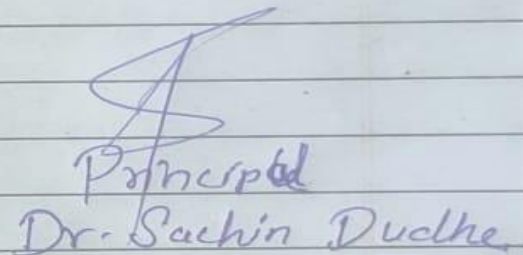 Principal
Dr. Sachin Dudhe